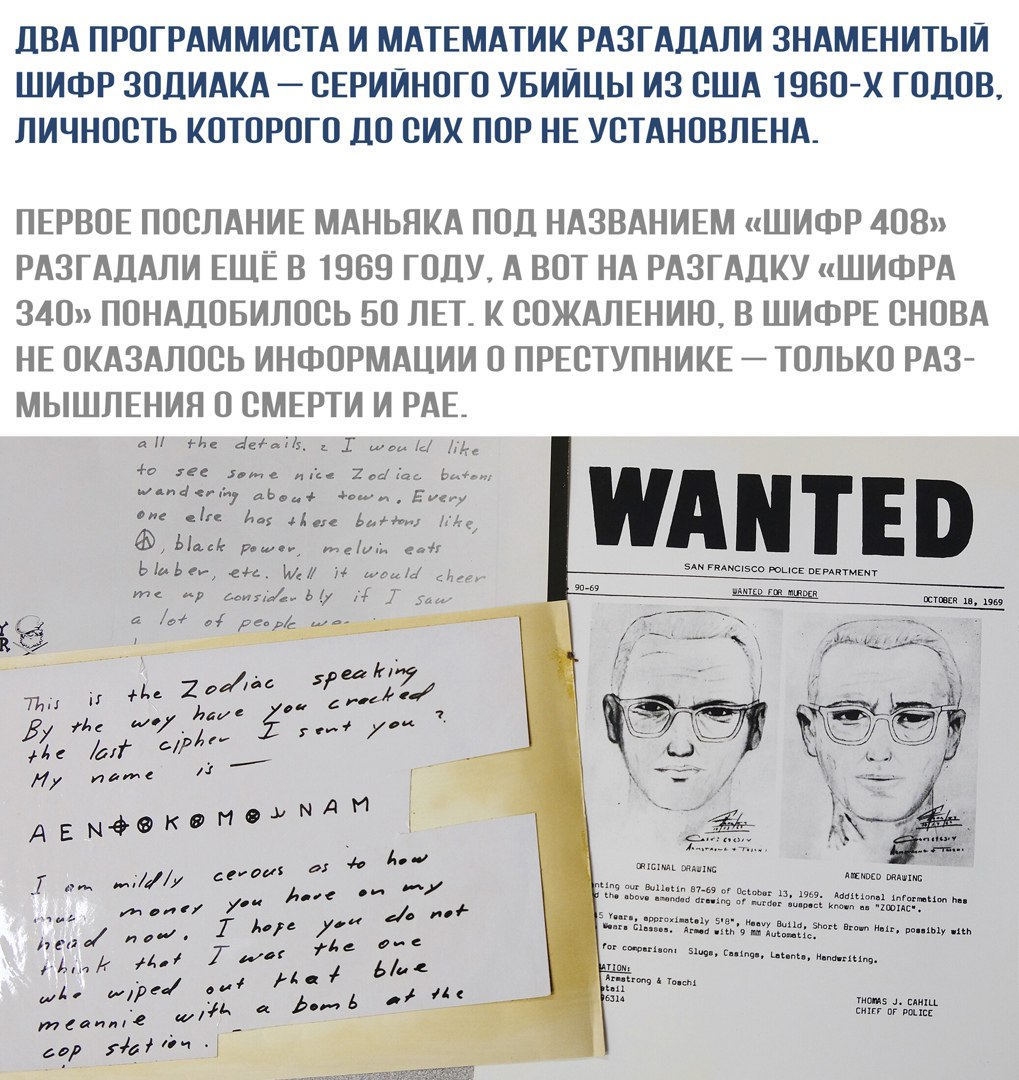 ДВА ПРОГРАММИСТА И МАТЕМАТИК РАЗГАДАЛИ ЗНАМЕНИТЫЙ
ШИФР ЗОДИАКА — СЕРИЙНОГО УБИЙЦЫ ИЗ США 1960-Х ГОДОВ,
ЛИЧНОСТЬ КОТОРОГО ДО СИХ ПОР НЕ УСТАНОВЛЕНА.
ПЕРВОЕ ПОСЛАНИЕ МАНЬЯКА ПОД НАЗВАНИЕМ «ШИФР 408»
РАЗГАДАЛИ ЕЩЁ В 1969 ГОДУ, А ВОТ НА РАЗГАДКУ «ШИФРА
340» ПОНАДОБИЛОСЬ 50 ЛЕТ. К СОЖАЛЕНИЮ, В ШИФРЕ СНОВА
НЕ ОКАЗАЛОСЬ ИНФОРМАЦИИ О ПРЕСТУПНИКЕ — ТОЛЬКО РАЗ-
МЫШЛЕНИЯ О СМЕРТИ И РАЕ.
all the details. I would like
to see some nice Zodiac butons
wandering about town. Every
one else has these buttons like,
, black power, melvin eats
bluber, etc. Well it would cheer
me up considerbly if I saw
a lot of people
This is the Zodiac speaking
By the way have you cracked
the last cipher I sent you?
My name is —
A E N K M N A M
I am mildly cerous as to how
money you have on my
head now. I hope you do not
think that I was the one
who wiped out that blue
meannie with a bomb at the
cop station.
WANTED
SAN FRANCISCO POLICE DEPARTMENT
90-69 WANTED FOR MURDER OCTOBER 18, 1969
ORIGINAL DRAWING AMENDED DRAWING
nting our Bulletin 87-69 of October 13, 1969. Additional information has
d the above amended drawing of murder suspect known as "ZODIAC".
5 Years, approximately 5'8", Heavy Build, Short Brown Hair, possibly with
Wears Glasses. Armed with 9 MM Automatic.
for comparison: Slugs, Casings, Latents, Handwriting.
ATION:
Armstrong & Toschi
etail
96314
THOMAS J. CAHILL
CHIEF OF POLICE